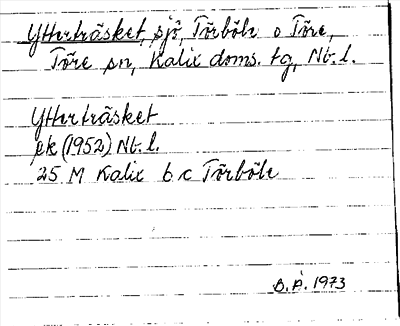 Ytterträsket, sjö, Törböle o Töre,
Töre sn, Kalix doms. tg, Nb. l.
Ytterträsket
ek (1952) Nb. l.
25 M Kalix 6 c Törböle
B. Å. 1973